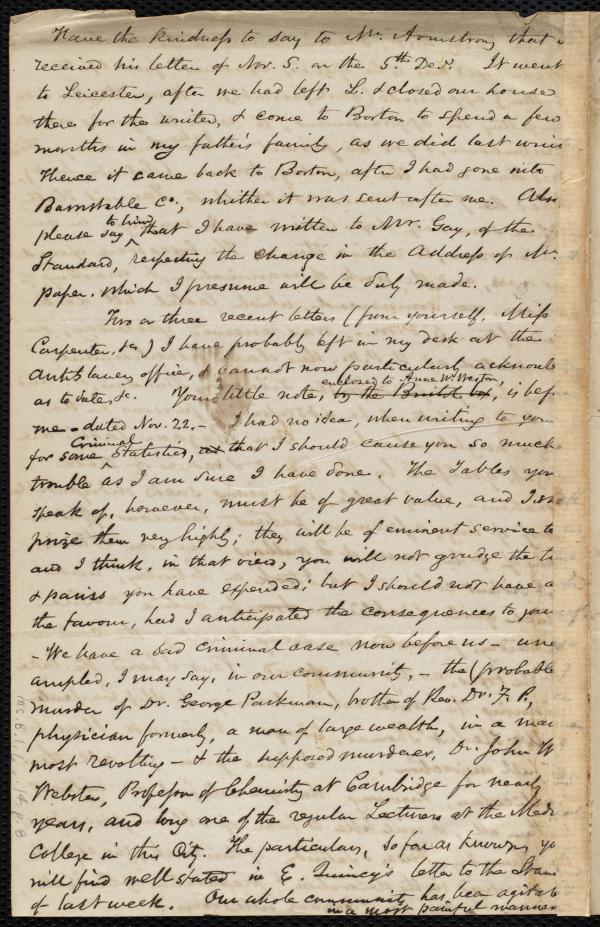 Have the kindness to say to Mr. Armstrong that
received his letter of Nov. 5. on the 5th Decr. It went
to Leicester, after we had left L. & closed our house
there for the winter, & come to Boston to spend a few
months in my father's family, as we did last win
Thence it came back to Boston, after I had gone into
Barnstable Co., whither it was sent after me. Also
to him
please say ^ that I have written to Mr. Gay, of the
Standard, respecting the change in the Address of Mr.
paper, which I presume will be duly made.
Two or three recent letters (from yourself, Miss
Carpenter, &c) I have probably left in my desk at the
Antislavery office, & cannot now particularly acknowle
enclosed to Anne W. Weston,
as to date, &c. Your little note, by the Bristol box, is bef
me - dated Nov. 22. - I had no idea, when writing to you
Criminal
for some ^ Statistics, that I should cause you so much
trouble as I am sure I have done. The Tables you
speak of, however, must be of great value, and I
prize them very highly; they will be of eminent service to
and I think, in that view, you will not grudge the t
& pains you have expended; but I should not have a
the favour, had I anticipated the consequences to you
- We have a sad criminal case now before us - une
ampled, I may say, in our community, - the (probable
murder of Dr. George Parkman, brother of Rev. Dr. F. P.,
physician formerly, a man of large wealth, in a man
most revolting - & the supposed murderer, Dr. John W
Webster, Professor of Chemistry at Cambridge for nearly
years, and long one of the regular Lecturers at the Medi
College in this City. The particulars, so far as known, yo
will find well stated in E. Quincy's letter to the Stan
of last week. Our whole community has been agitate
in a most painful manner